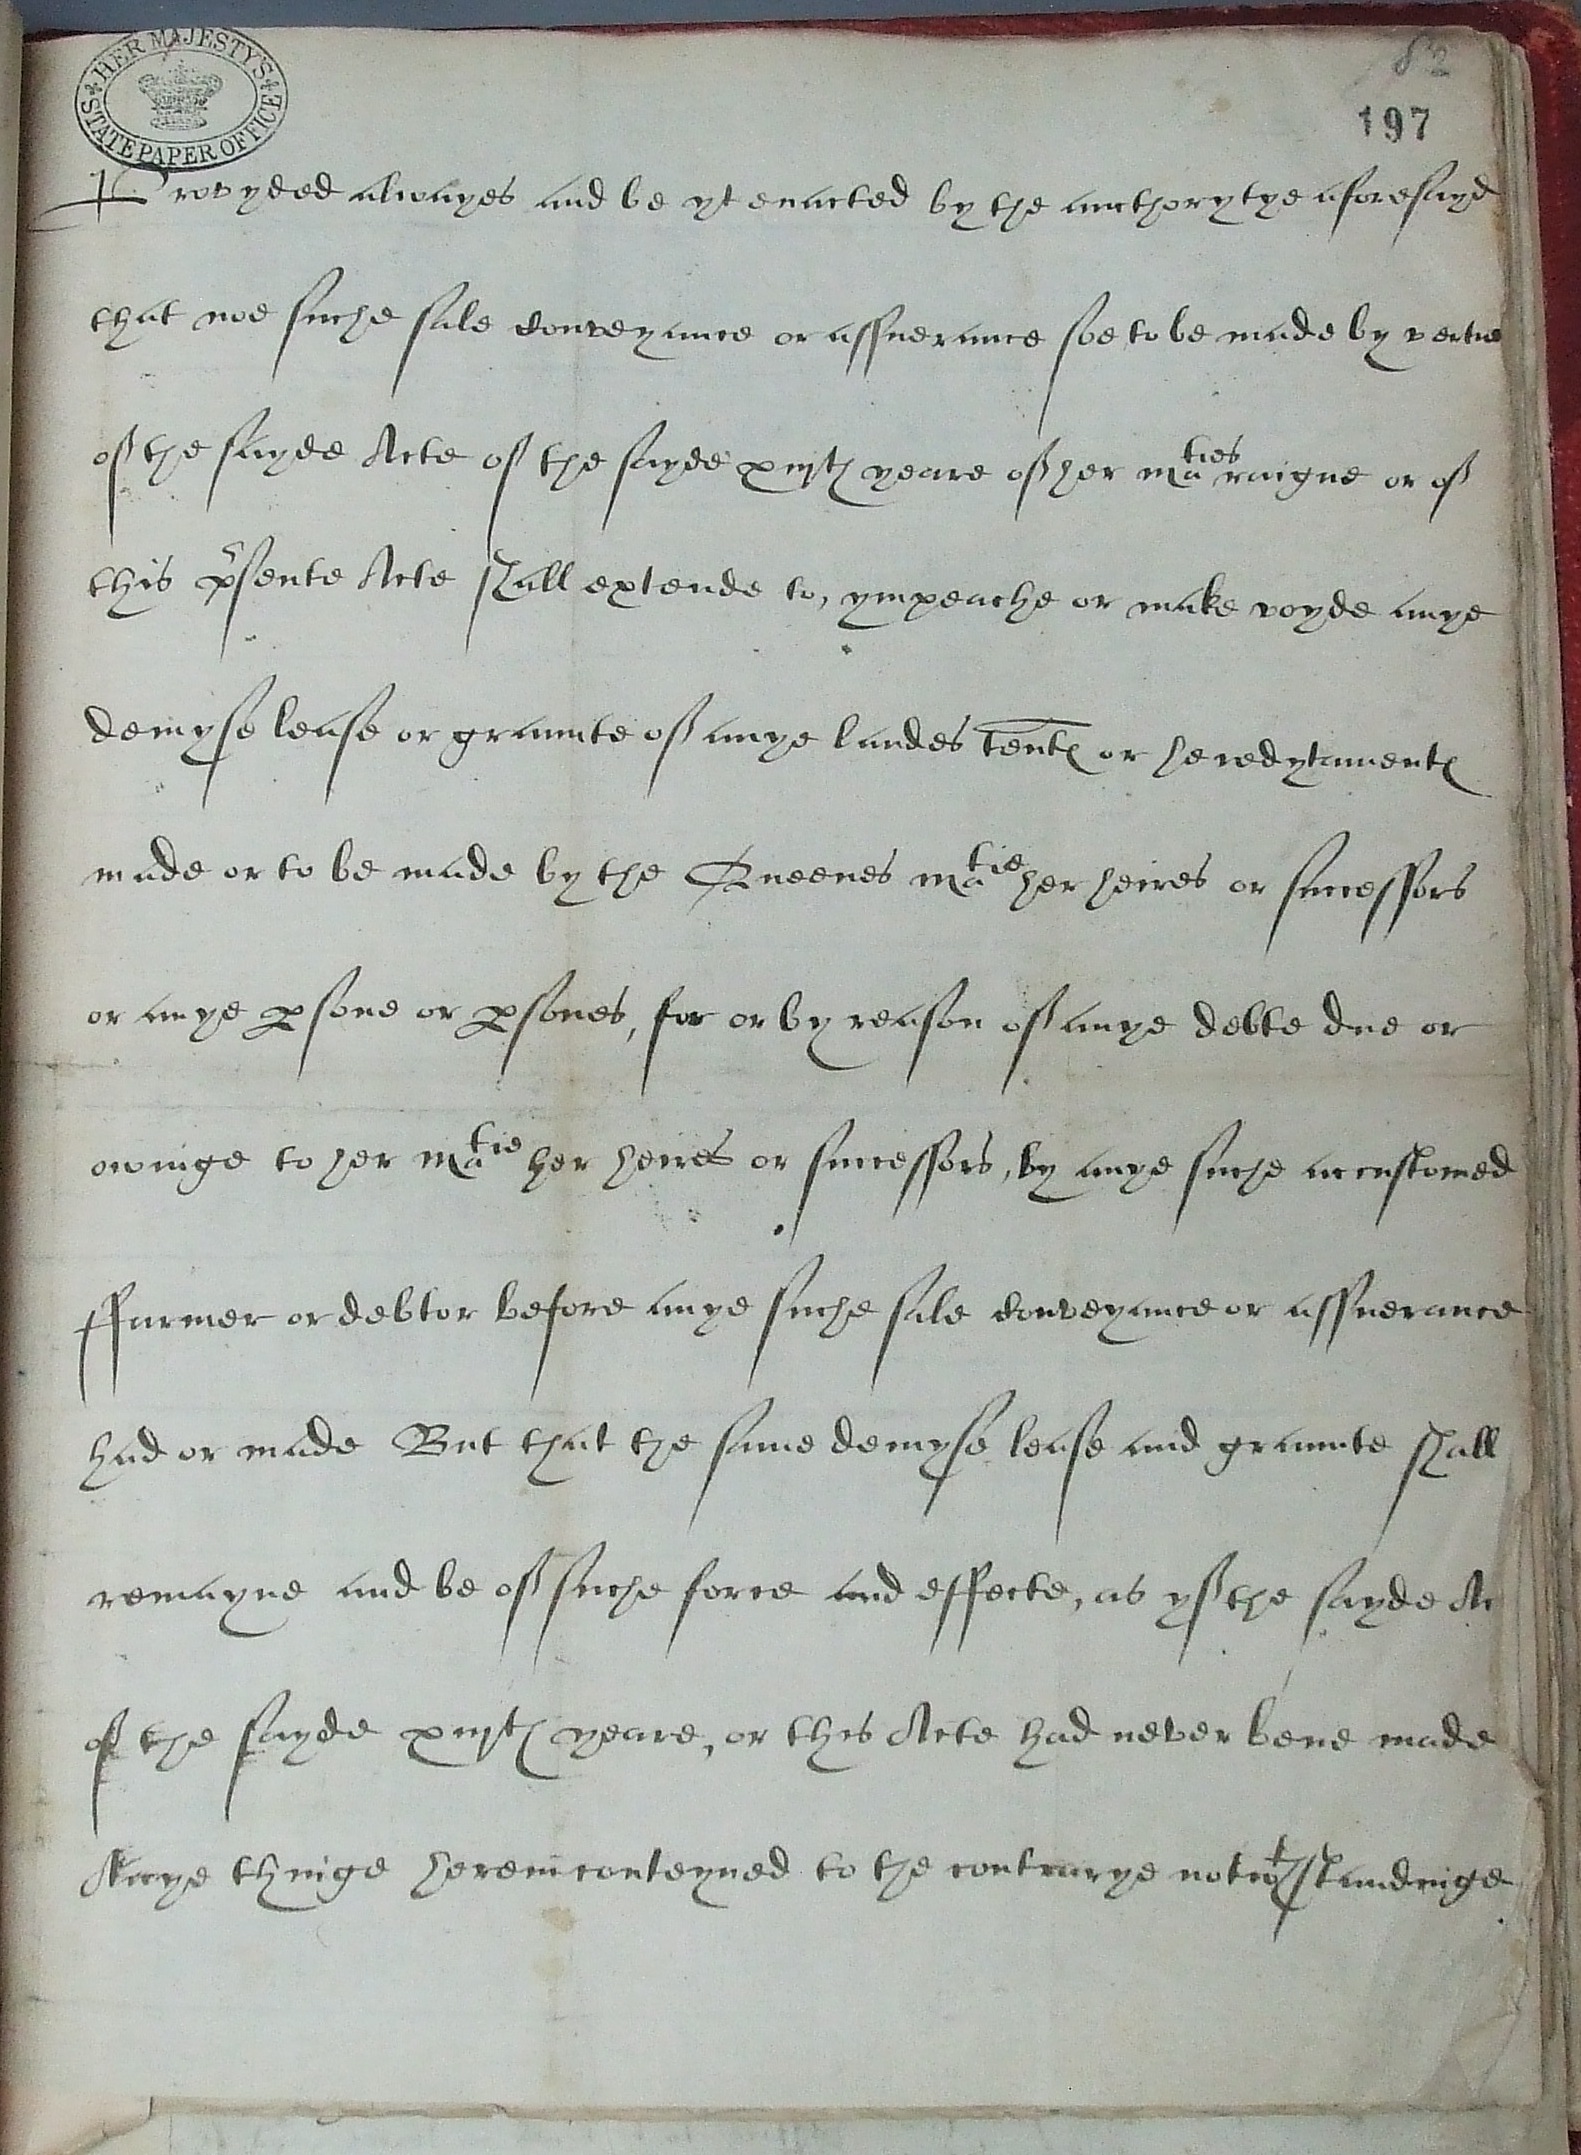 HER MAJESTY'S STATE PAPER OFFICE
82
197
Provyded alwayes and be yt enacted by the aucthorytye aforesayd
that noe suche sale conveyance or assuerance soe to be made by vertue
of the sayde Acte of the sayde xiijth yeare of her Maties raigne or of
this pʳsente Acte shall extende to, ympeache or make voyde anye
demyse lease or graunte of anye landes tent℮ or heredytament℮
made or to be made by the Queenes Matie her heires or successors
or anye ꝑsone or ꝑsones, for or by reason of anye debte due or
owinge to her Matie her heires or successors, by anye suche accustomed
ffarmer or debtor before anye suche sale conveyance or assuerance
had or made But that the same demyse lease and graunte shall
remayne and be of suche force and effecte, as yf the sayde Ac
of the sayde xiijth yeare, or this Acte had never bene made
Anye thinge herein conteyned to the contrarye notwthstandinge